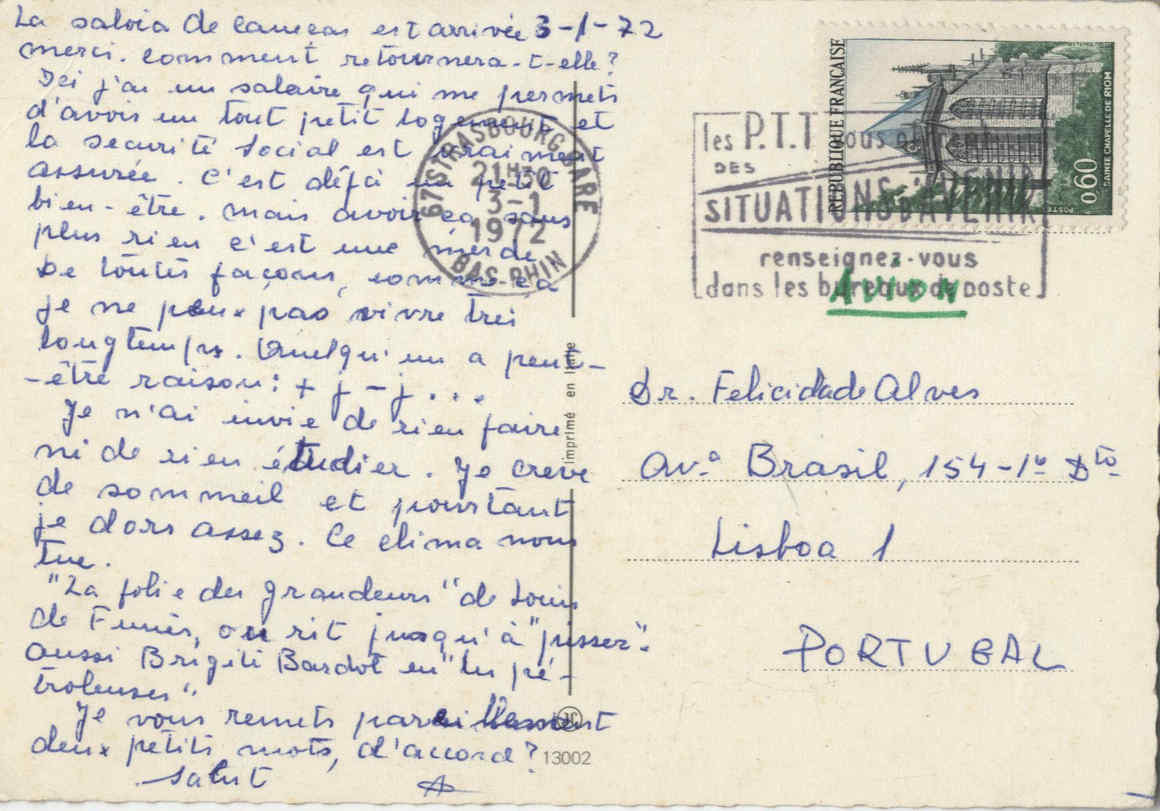 La salvia de Cameras est arrivée 3-1-72
merci. comment retournera-t-elle?
Ici j'ai un salaire qui me permets
d'avoir un tout petit logement et
la securité social est vraiment
assurée. C'est déjà un petit
bien-être. mais avoir ça sans
plus rien c'est une merde
De toutes façons, comme ça
je ne peux pas vivre trei
longtemps. Quelqu'un a peut-
-être raison: + + - + ...
Je n'ai envie de rien faire
ni de rien étudier. Je creve
de sommeil et pourtant
je dors assez. Ce clima nous
tue.
"La folie des grandeurs" de Louis
de Funès, on rit jusqu'à "pisser".
aussi Brigiti Bardot en "les pé-
troleuses".
Je vous remets pareillement
deux petits mots, d'accord?
Salut
67 STRASBOURG GARE
21H30
3-1
1972
BAS-RHIN
les P.T.T vous offrent
DES
SITUATIONS D'AVENIR
renseignez-vous
dans les bureaux de poste
REPUBLIQUE FRANCAISE
0,60
POSTES
SAINTE CHAPELLE DE RIOM
AVION
Dr. Felicidade Alves
Av.ª Brasil, 154-1º Dto
Lisboa 1
PORTUGAL
Imprimé en Italie
13002